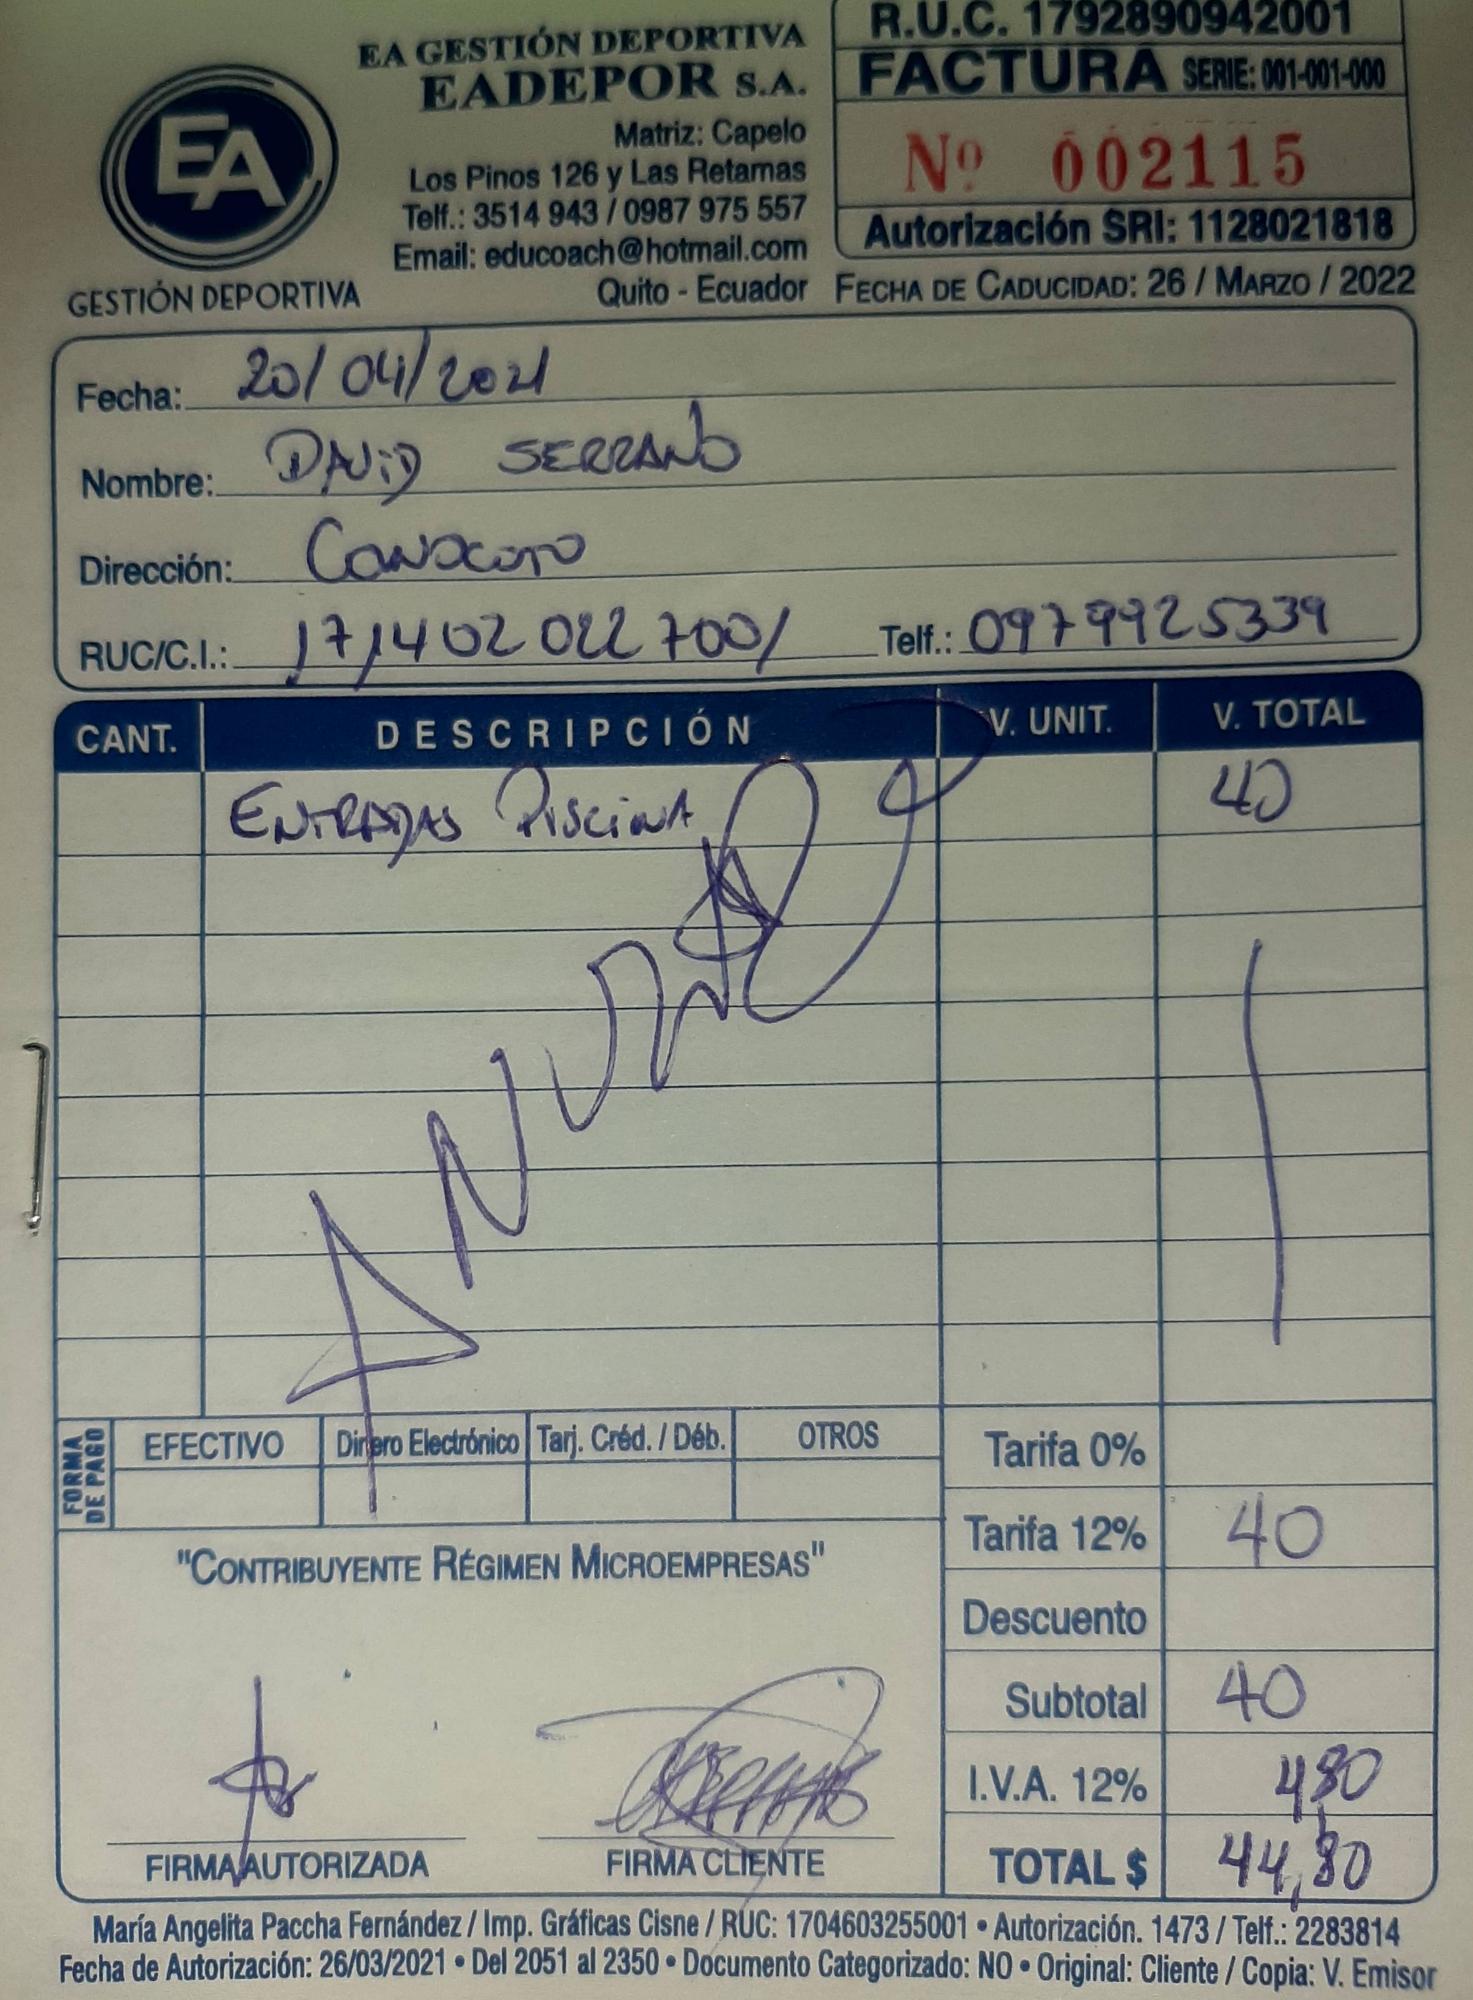 EA GESTIÓN DEPORTIVA
EADEPOR S.A.
Matriz: Capelo
Los Pinos 126 y Las Retamas
Telf.: 3514 943 / 0987 975 557
Email: educoach@hotmail.com
Quito - Ecuador
EA
GESTIÓN DEPORTIVA
R.U.C. 1792890942001
FACTURA SERIE: 001-001-000
Nº 002115
Autorización SRI: 1128021818
FECHA DE CADUCIDAD: 26 / MARZO / 2022
Fecha: 20/04/2021
Nombre: DAViD SERRANO
Dirección: CONOCOTO
RUC/C.I.: 1714020227001 Telf.: 0979925339
CANT. DESCRIPCIÓN V. UNIT. V. TOTAL
ENTRADAS PISCiNA 40
ANULADO
FORMA DE PAGO EFECTIVO Dinero Electrónico Tarj. Créd. / Déb. OTROS
Tarifa 0%
Tarifa 12% 40
Descuento
Subtotal 40
I.V.A. 12% 4,80
TOTAL $ 44,80
"CONTRIBUYENTE RÉGIMEN MICROEMPRESAS"
FIRMA AUTORIZADA FIRMA CLIENTE
María Angelita Paccha Fernández / Imp. Gráficas Cisne / RUC: 1704603255001 • Autorización. 1473 / Telf.: 2283814
Fecha de Autorización: 26/03/2021 • Del 2051 al 2350 • Documento Categorizado: NO • Original: Cliente / Copia: V. Emisor